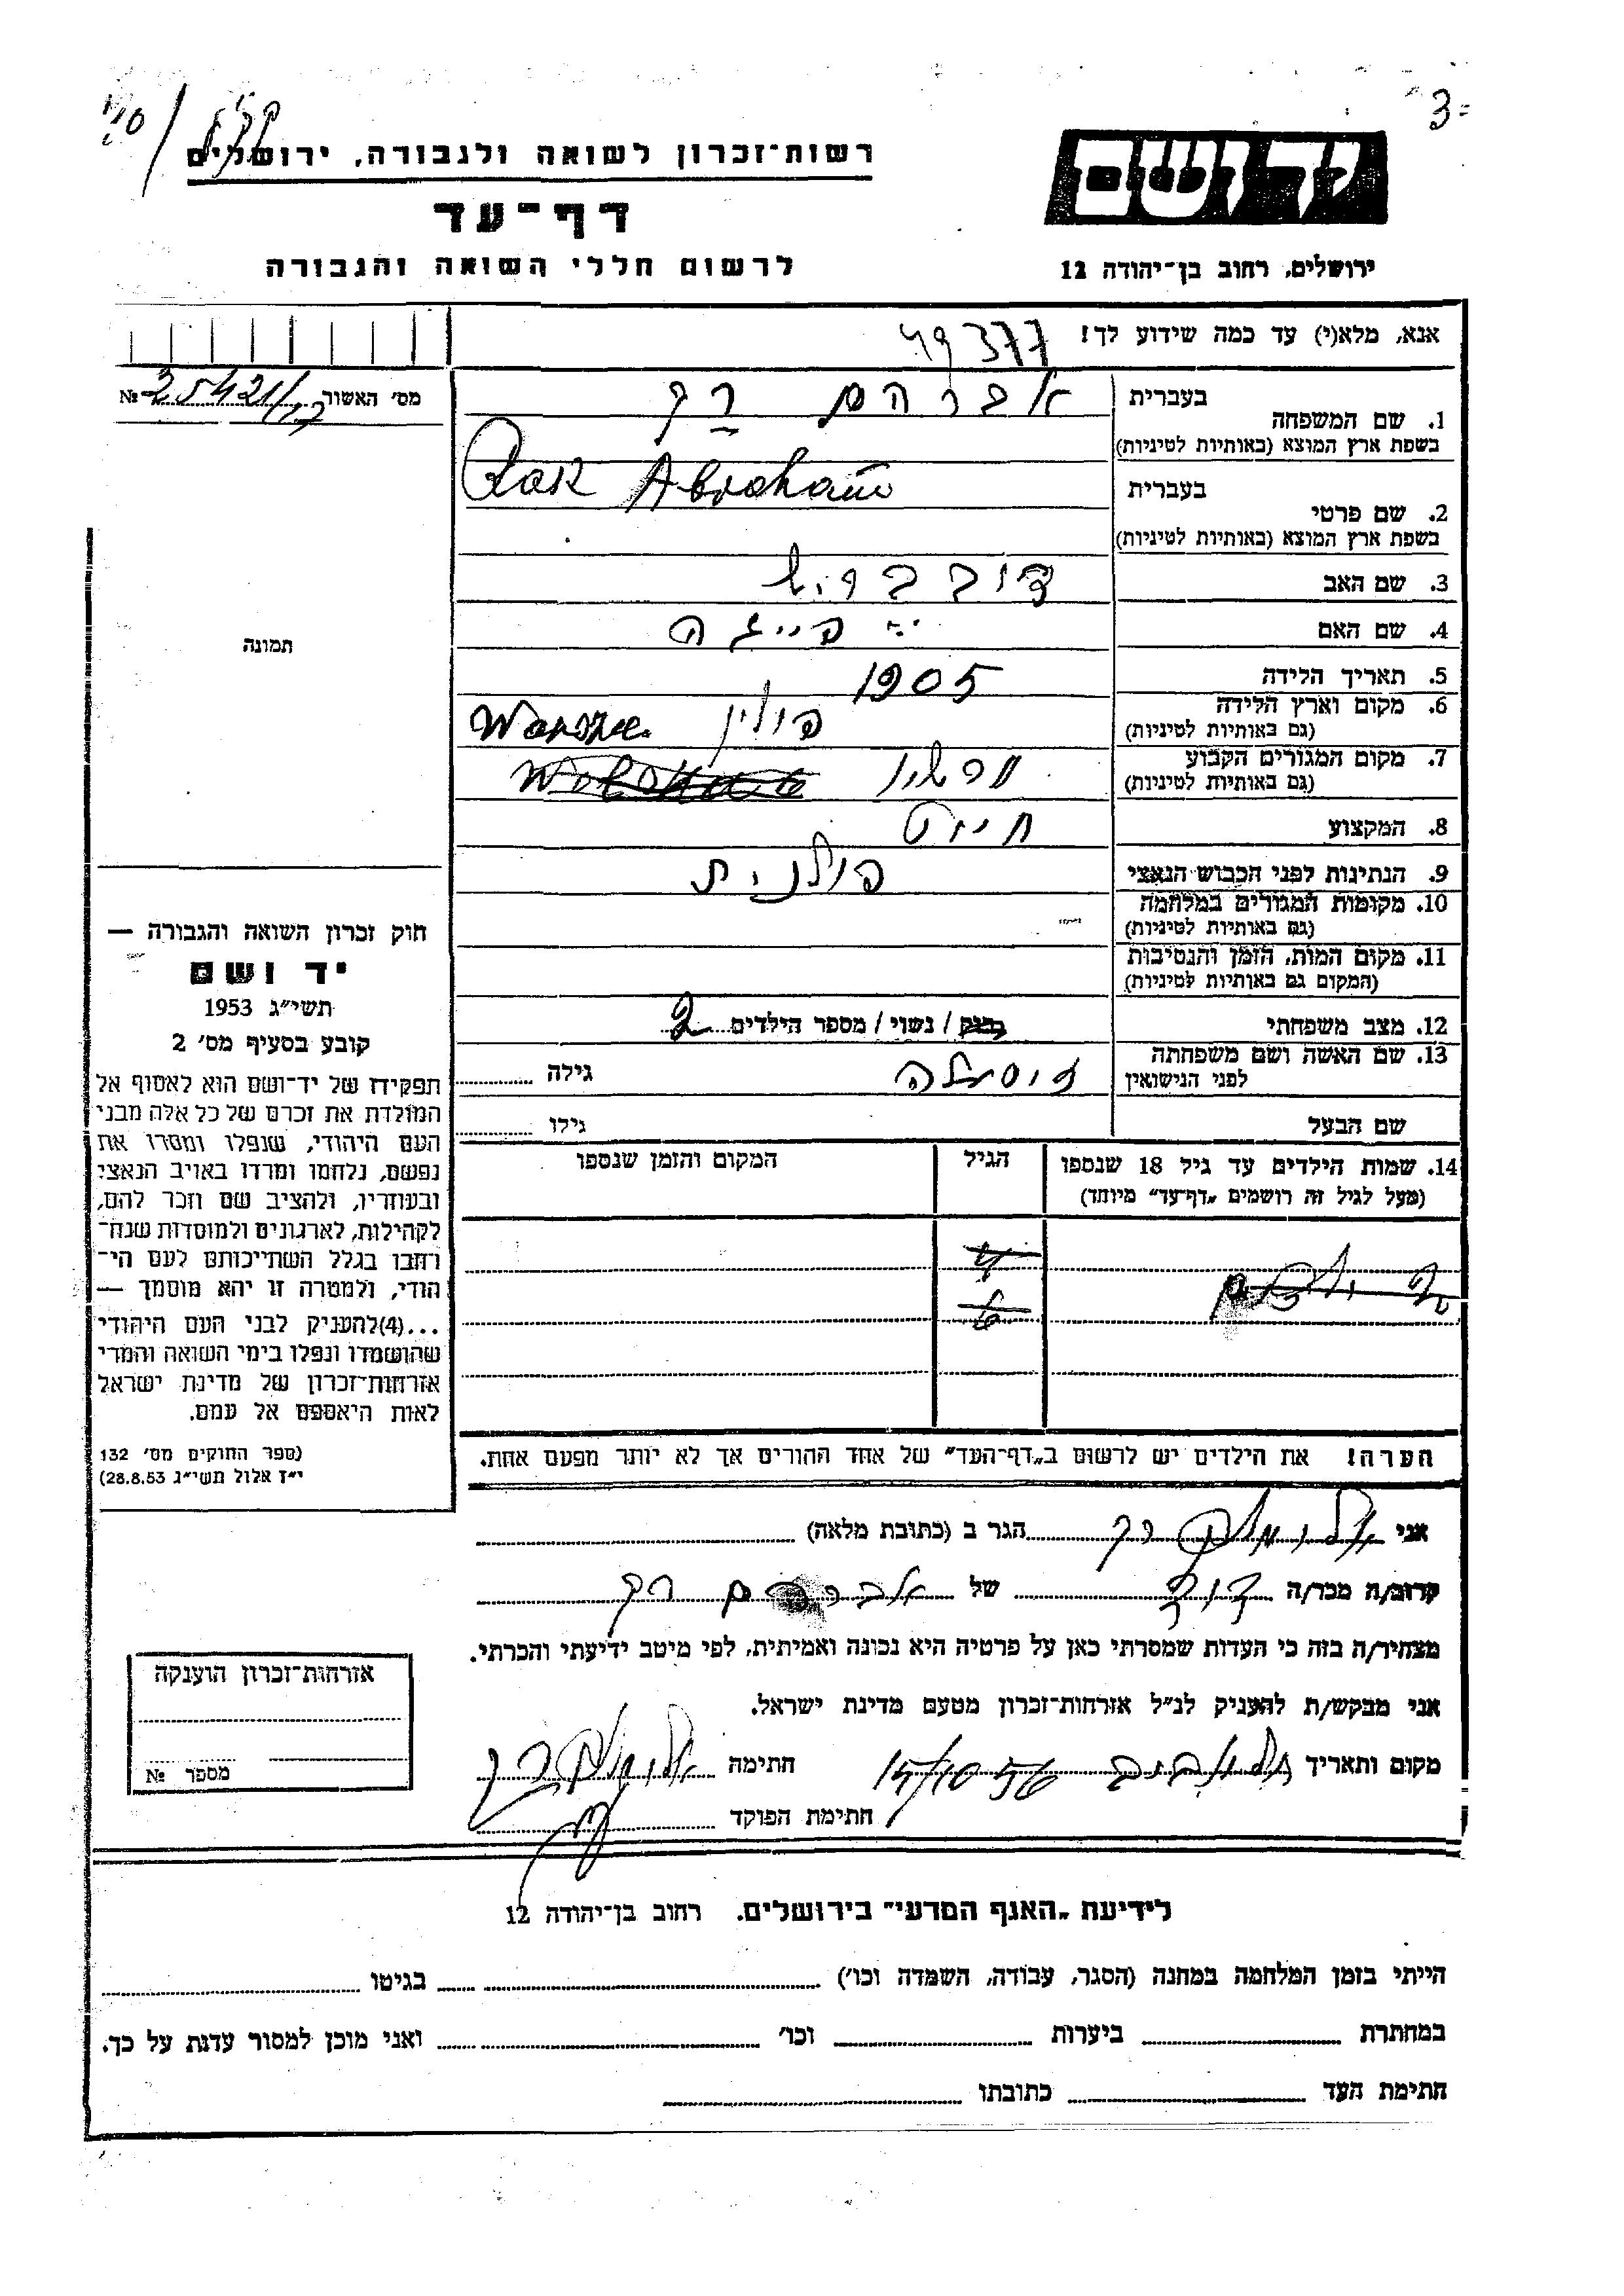 3-
רשות־זכרון לשואה ולגבורה, ירושלים
יד ושם
דף־עד
לרשום חללי השואה והגבורה
ירושלים, רחוב בן־יהודה 12
אנא, מלא(י) עד כמה שידוע לך!
49377
מס׳ האשור 25421 №
בעברית
אברהם רק
1. שם המשפחה
בשפת ארץ המוצא (באותיות לטיניות)
Rak Abraham
בעברית
2. שם פרטי
בשפת ארץ המוצא (באותיות לטיניות)
3. שם האב
דוב בריש
4. שם האם
פייגה
5. תאריך הלידה
1905
6. מקום וארץ הלידה
(גם באותיות לטיניות)
פולין
7. מקום המגורים הקבוע
(גם באותיות לטיניות)
8. המקצוע
חייט
9. הנתינות לפני הכבוש הנאצי
פולנית
10. מקומות המגורים במלחמה
(גם באותיות לטיניות)
11. מקום המות, הזמן והנסיבות
(המקום גם באותיות לטיניות)
12. מצב משפחתי
רווק / נשוי / מספר הילדים 2
13. שם האשה ושם משפחתה
לפני הנישואין
גילה
שם הבעל
גילו
14. שמות הילדים עד גיל 18 שנספו
(מעל לגיל זה רושמים „דף־עד״ מיוחד)
הגיל
המקום והזמן שנספו
4
6
הערה! את הילדים יש לרשום ב„דף־העד״ של אחד ההורים אך לא יותר מפעם אחת.
תמונה
חוק זכרון השואה והגבורה —
יד ושם
תשי״ג 1953
קובע בסעיף מס׳ 2
תפקידו של יד־ושם הוא לאסוף אל
המולדת את זכרם של כל אלה מבני
העם היהודי, שנפלו ומסרו את
נפשם, נלחמו ומרדו באויב הנאצי
ובעוזריו, ולהציב שם וזכר להם,
לקהילות, לארגונים ולמוסדות שנח־
רחבו בגלל השתייכותם לעם הי־
הודי, ולמטרה זו יהא מוסמך —
...(4)להעניק לבני העם היהודי
שהושמדו ונפלו בימי השואה והמרי
אזרחות־זכרון של מדינת ישראל
לאות היאספם אל עמם.
(ספר החוקים מס׳ 132
י״ז אלול תשי״ג 28.8.53)
אני רק הגר ב (כתובת מלאה)
קרוב/ה מכר/ה דוד של אברהם רק
מצהיר/ה בזה כי העדות שמסרתי כאן על פרטיה היא נכונה ואמיתית, לפי מיטב ידיעתי והכרתי.
אני מבקש/ת להעניק לנ״ל אזרחות־זכרון מטעם מדינת ישראל.
מקום ותאריך תל אביב 15/10 56 חתימה
חתימת הפוקד
אזרחות־זכרון הוענקה
מספר №
לידיעת „האגף המדעי״ בירושלים. רחוב בן־יהודה 12
הייתי בזמן המלחמה במחנה (הסגר, עבודה, השמדה וכו׳) בגיטו
במחתרת ביערות וכו׳ ואני מוכן למסור עדות על כך.
חתימת העד כתובתו